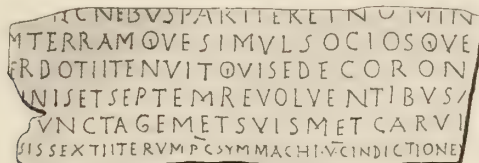 RCNEBVSPARITERETNUMIN
MTERRAMQVESIMVLSOCIOSQVE
ERDOTIITENVITQVISEDECORON
NISETSEPTEMREVOLVENTIBVS
VNCTAGEMETSVISMETCARVI
SISSEXTIITERVMPCSYMMACHIVCINDICTIONE